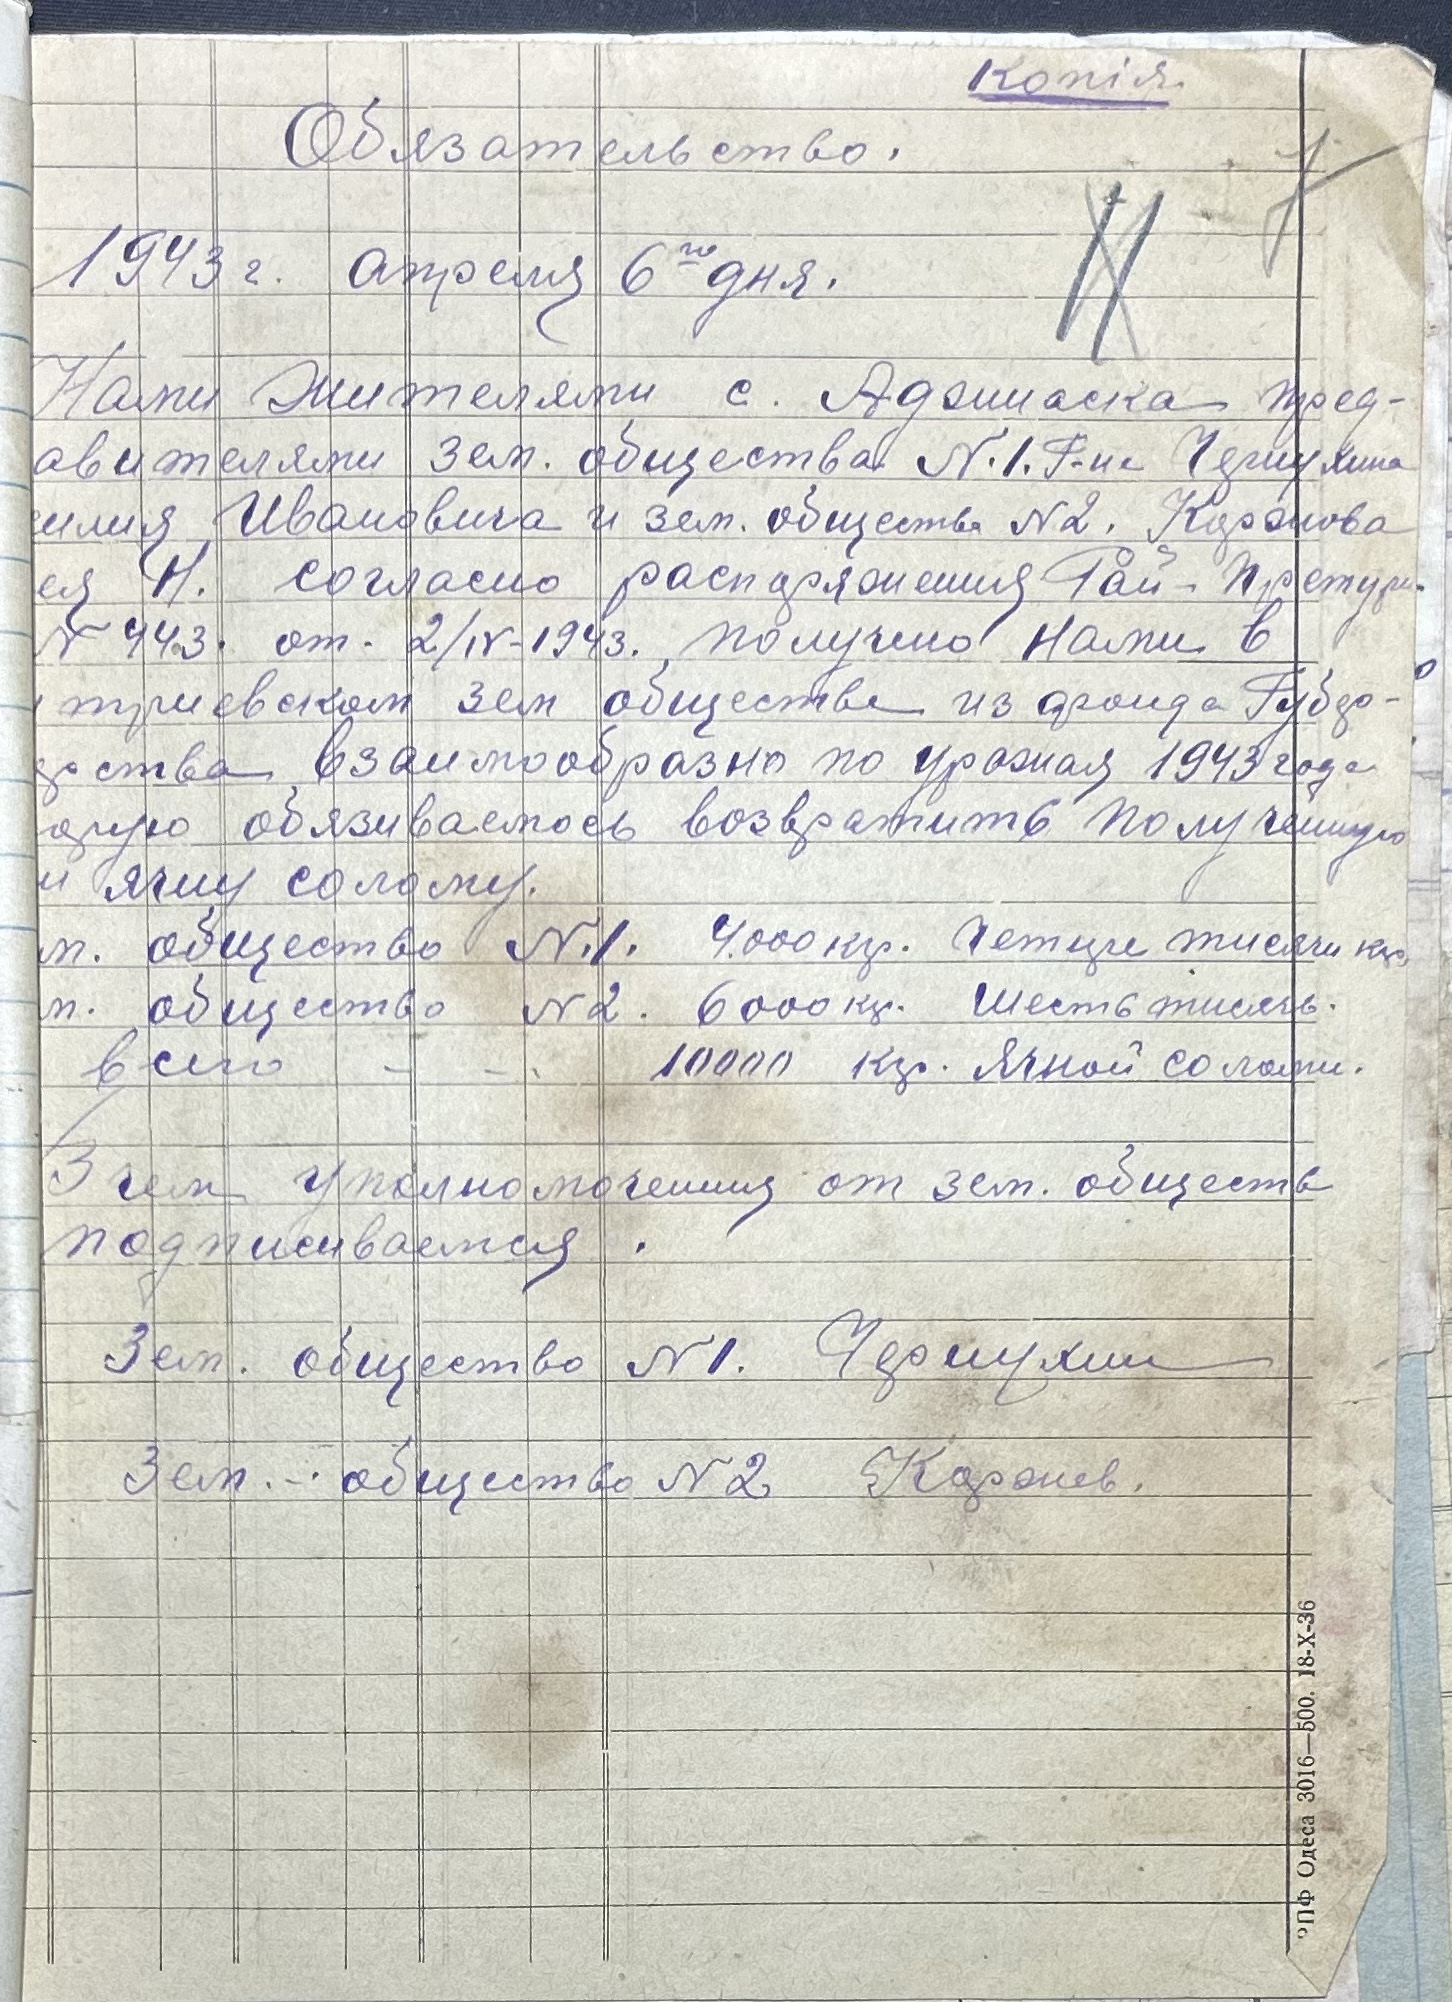 копія
Обязательство.
1943 г. апреля 6го дня.
Нами Жителями с. Аджиаска пред-
авителями зем. общества N.1. Г-на Чернухина
силия Ивановича и зем. общества N2. Коржова
ея Н. согласно распоряжения Рай-Претури
N 443. от. 2/IV-1943. Получено Нами в
итриевском зем обществе из фонда Губер-
рства взаимообразно по урожая 1943 года
орую обязиваемось возвратить Полученную
и ячну солому.
м. общество N.1. 4.000 кгр. Четире тисячи кгр.
м. общество N2. 6000 кгр. Шесть тисячь.
Всего - - . 10000 кгр. Ячной соломи.
В чем Уполномочения от зем. обществ
подписиваемся.
Зем. общество N1. Чернухин
Зем. - общество N2 Коржев.
ПФ Одеса 3016—500. 18-X-36